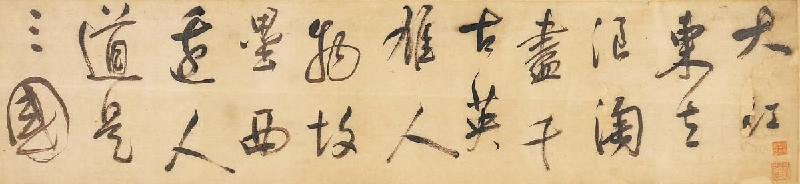 大江
東去
浪淘
盡千
古英
雄人
物故
壘西
邊人
道是
三國